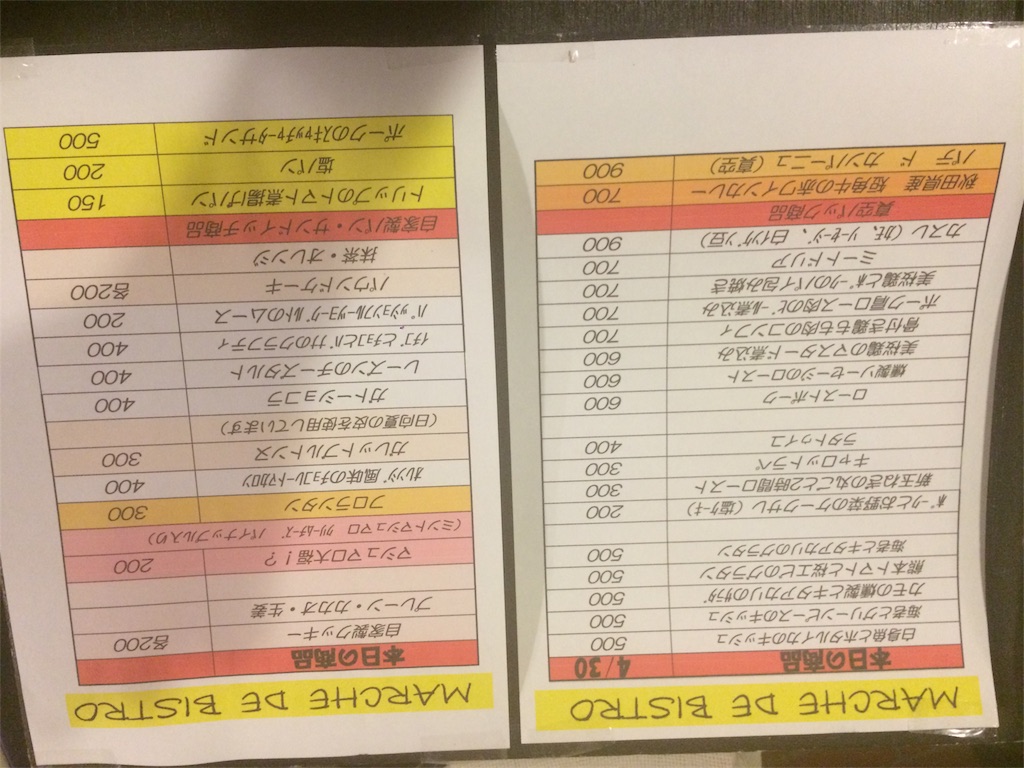 MARCHE DE BISTRO
本日の商品 4/30
白身魚とホタルイカのキッシュ 500
海老とグリーンピースのキッシュ 500
カモの燻製とキタアカリのｻﾗﾀﾞ 500
熊本トマトと桜エビのグラタン 500
海老とキタアカリのグラタン 500
ﾎﾟｰｸとお野菜のケークサレ（塩ｹｰｷ） 200
新玉ねぎの丸ごと2時間ロースト 300
キャロットラペ 300
ラタトゥイユ 400
ローストポーク 600
燻製ソーセージのロースト 600
美桜鶏のマスタード煮込み 600
骨付き鶏もも肉のコンフィ 700
ポーク肩ロース肉のﾋﾞｰﾙ煮込み 700
美桜鶏とﾎﾟｰｸのパイ包み焼き 700
ミートドリア 700
カスレ（ｶﾓ、ｿｰｾｰｼﾞ、白ｲﾝｹﾞﾝ豆） 900
真空パック商品
秋田県産 短角牛の赤ワインカレー 700
パテ ド カンパーニュ（真空） 900
MARCHE DE BISTRO
本日の商品
自家製クッキー 各200
プレーン・カカオ・生姜
マシュマロ大福！？ 200
（ミントマシュマロ ｸﾘｰﾑﾁｰｽﾞ パイナップル入り）
フロランタン 300
ｵﾚﾝｼﾞ風味のﾁｮｺﾚｰﾄﾏｶﾛﾝ 400
ガレットブルトンヌ 300
（日向夏の皮を使用しています）
ガトーショコラ 400
レーズンのチーズタルト 400
ｲﾁｺﾞとﾁｮｺとﾊﾞﾅﾅのクラフティ 400
ﾊﾟｯｼｮﾝﾌﾙｰﾂﾖｰｸﾞﾙﾄのムース 200
パウンドケーキ 各200
抹茶・オレンジ
自家製パン・サンドイッチ商品
トリップのトマト煮揚げパン 150
塩パン 200
ポークのｽｷｬｯﾁｬｰﾀサンド 500